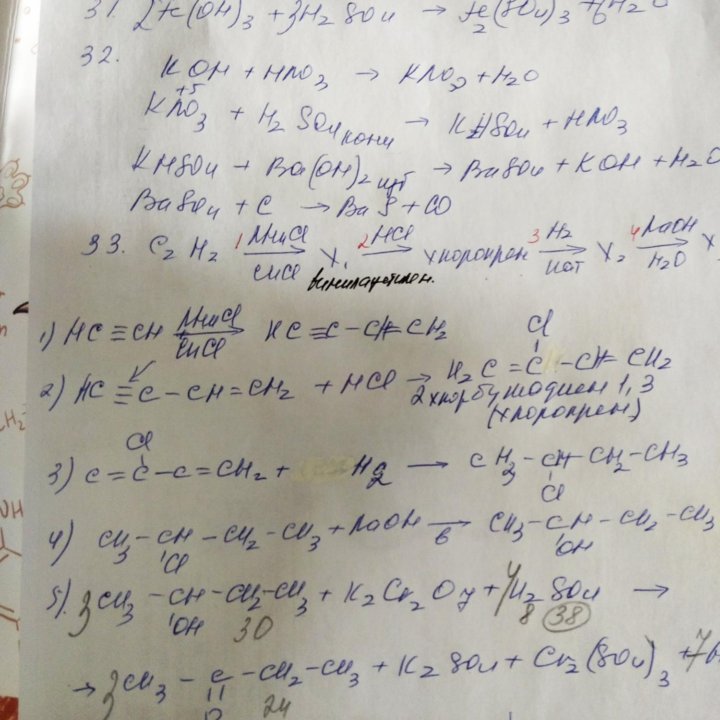 31. 2Fe(OH)3 + 3H2SO4 → Fe2(SO4)3 + 6H2O
32.
KOH + HNO3 → KNO3 + H2O
+5
KNO3 + H2SO4 конц → KHSO4 + HNO3
KHSO4 + Ba(OH)2 изб → BaSO4 + KOH + H2O
BaSO4 + C → BaS + CO
33. C2H2 1 NH4Cl CuCl → X1 2 HCl → хлоропрен 3 H2 кат → X2 4 NaOH H2O → X
винилацетилен.
1) HC≡CH NH4Cl CuCl → HC≡C–CH=CH2
Cl
2) HC≡C–CH=CH2 + HCl → H2C=C–CH=CH2
2 хлорбутадиен 1,3
(хлоропрен)
Cl
3) C=C–C=CH2 + H2 → CH3–CH–CH2–CH3
Cl
4) CH3–CH–CH2–CH3 + NaOH в → CH3–CH–CH2–CH3
Cl OH
5). 3CH3–CH–CH2–CH3 + K2Cr2O7 + 4H2SO4 →
OH 30 8 38
→ 3CH3–C–CH2–CH3 + K2SO4 + Cr2(SO4)3 + 7H
24